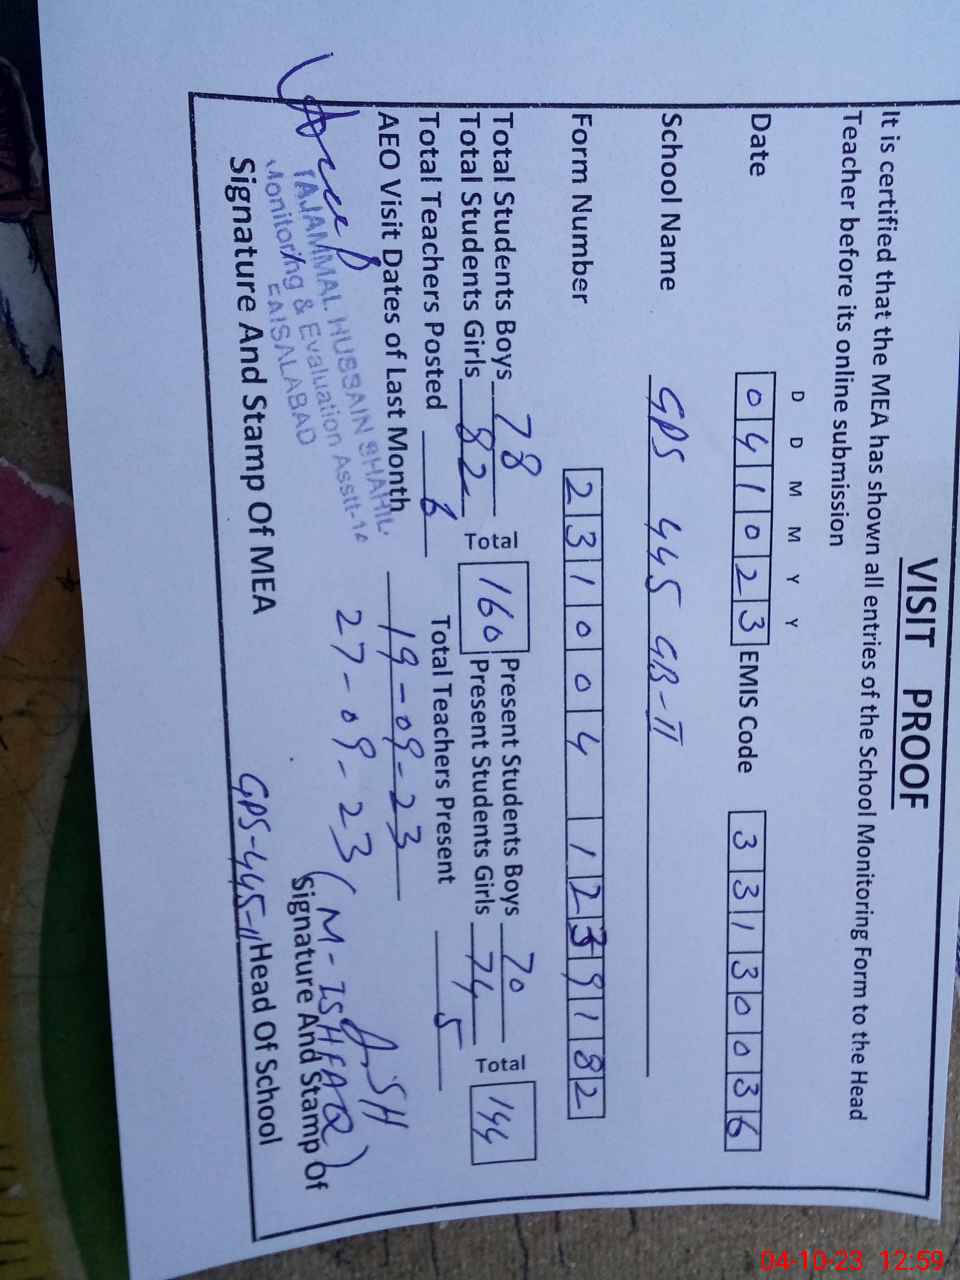 VISIT PROOF
It is certified that the MEA has shown all entries of the School Monitoring Form to the Head
Teacher before its online submission
D D M M Y Y
Date 041023 EMIS Code 33130036
School Name GPS 445 GB-II
Form Number 231004 1239182
Total Students Boys 78 Total 160 Present Students Boys 70 Total 144
Total Students Girls 82 Present Students Girls 74
Total Teachers Posted 6 Total Teachers Present 5
AEO Visit Dates of Last Month 19-09-23
27-09-23
(M-ISHFAQ)
TAJAMMAL HUSSAIN SHAHIL
Monitoring & Evaluation Asstt-14
FAISALABAD
Signature And Stamp Of MEA
Signature And Stamp Of
GPS-445-II Head Of School
04-10-23 12:59